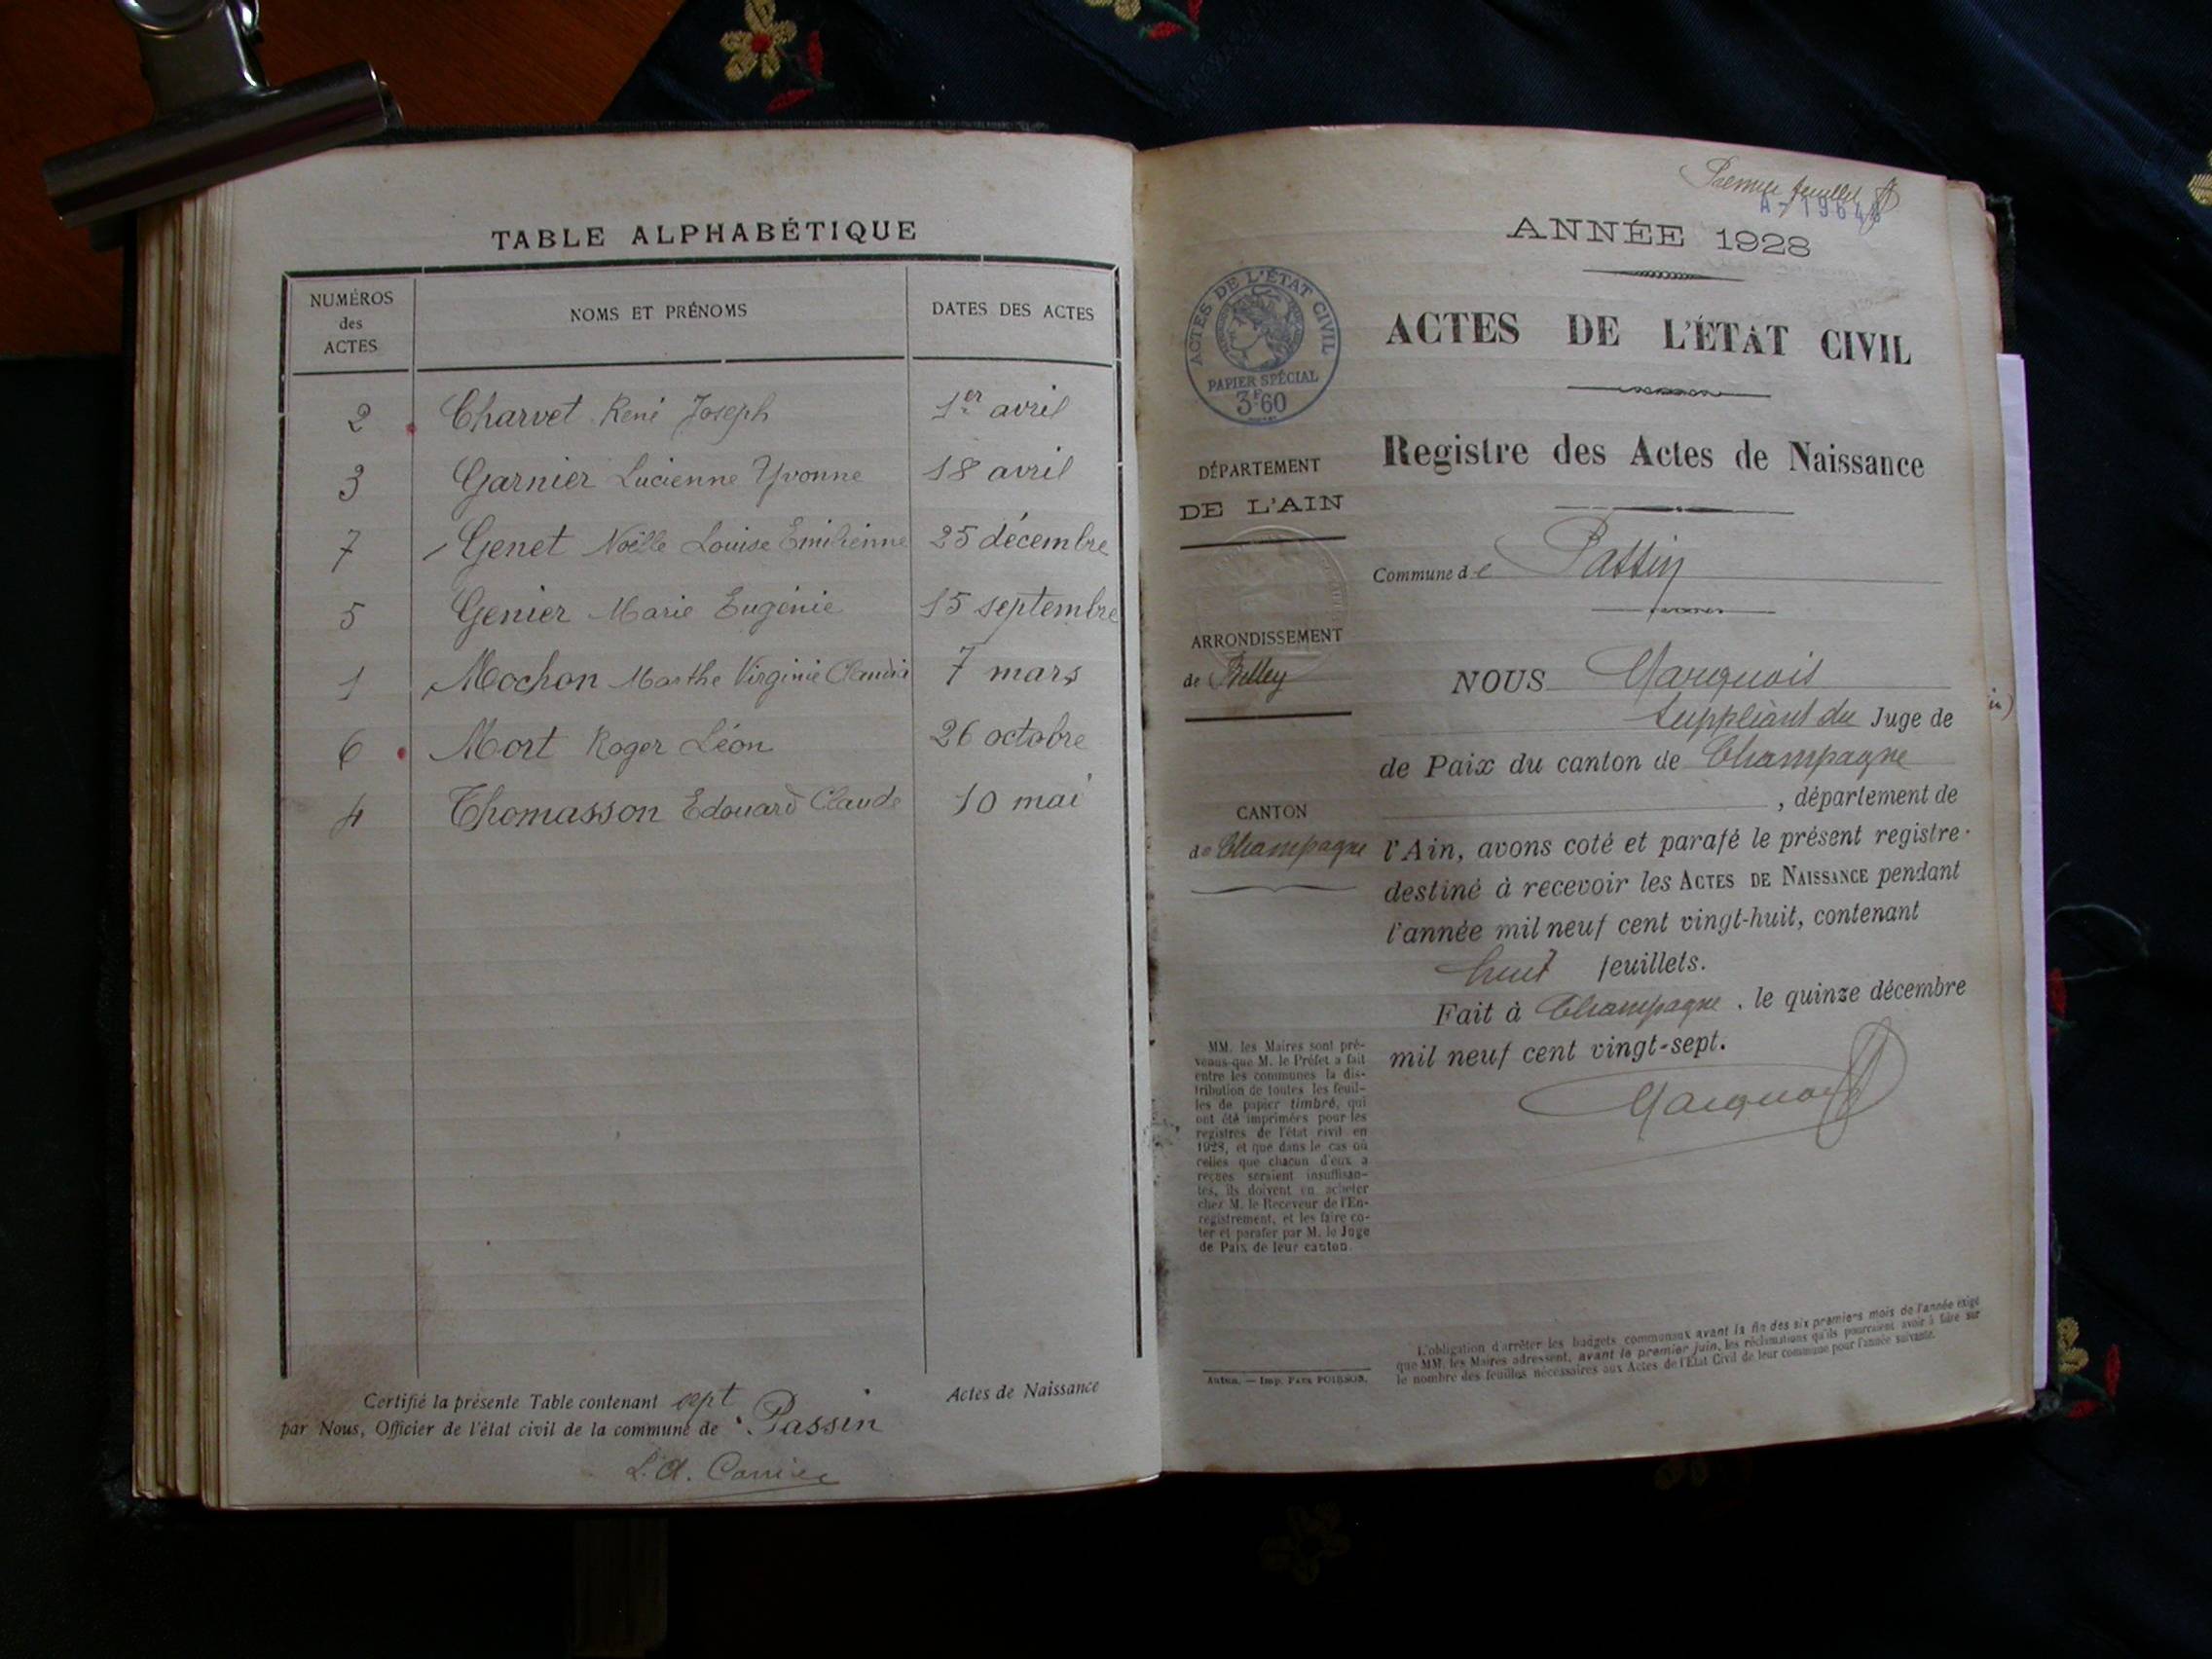 TABLE ALPHABÉTIQUE
NUMÉROS
des
ACTES
NOMS ET PRÉNOMS
DATES DES ACTES
2 Charvet René Joseph 1er avril
3 Garnier Lucienne Yvonne 18 avril
7 Genet Noëlle Louise Emilienne 25 décembre
5 Genier Marie Eugénie 15 septembre
1 Mochon Marthe Virginie Claudia 7 mars
6 Mort Roger Léon 26 octobre
4 Thomasson Edouard Claude 10 mai
Certifié la présente Table contenant sept Actes de Naissance
par Nous, Officier de l'état civil de la commune de Passin
Premier feuillet
ANNÉE 1928
ACTES DE L'ÉTAT CIVIL
PAPIER SPÉCIAL
3F60
ACTES DE L'ÉTAT CIVIL
Registre des Actes de Naissance
DÉPARTEMENT
DE L'AIN
Commune de Passin
ARRONDISSEMENT
de Belley
CANTON
de Champagne
NOUS Marquois
Suppléant du Juge de
de Paix du canton de Champagne
, département de
l'Ain, avons coté et parafé le présent registre
destiné à recevoir les ACTES DE NAISSANCE pendant
l'année mil neuf cent vingt-huit, contenant
huit feuillets.
Fait à Champagne, le quinze décembre
mil neuf cent vingt-sept.
Marquois
MM. les Maires sont pré-
venus que M. le Préfet a fait
entre les communes la dis-
tribution de toutes les feuil-
les de papier timbré, qui
ont été imprimées pour les
registres de l'état civil en
1928, et que dans le cas où
celles que chacun d'eux a
reçues seraient insuffisan-
tes, ils doivent en acheter
chez M. le Receveur de l'En-
registrement, et les faire co-
ter et parafer par M. le Juge
de Paix de leur canton.
Autun. — Imp. Paul POISSON.
L'obligation d'arrêter les budgets communaux avant la fin des six premiers mois de l'année exige
que MM. les Maires adressent, avant le premier juin, les réclamations qu'ils pourraient avoir à faire sur
le nombre des feuilles nécessaires aux Actes de l'État Civil de leur commune pour l'année suivante.